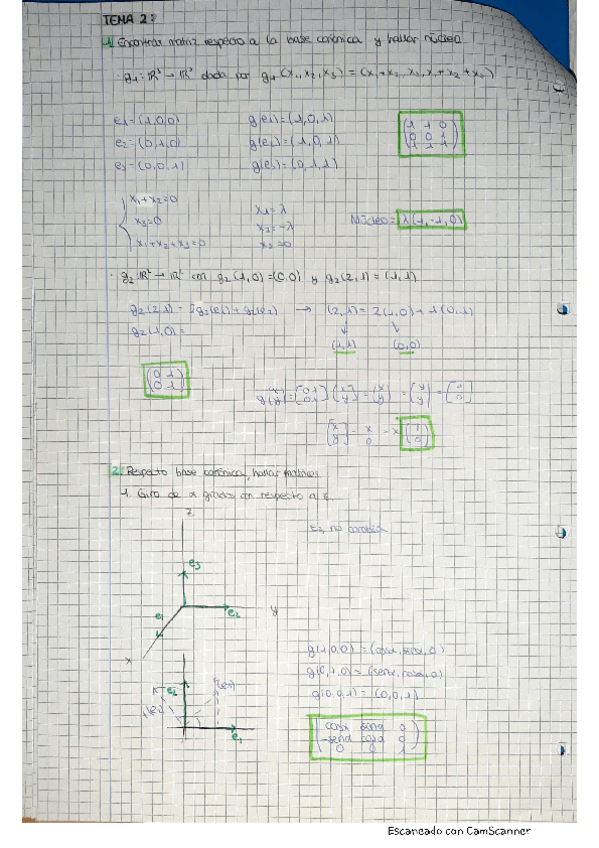 TEMA 2:
1. Encontrar matriz respecto a la base canónica y hallar núcleo
· g₁: ℝ³ → ℝ³ dada por g₁ (x₁, x₂, x₃) = (x₁+x₂, x₃, x₁+x₂+x₃)
e₁ = (1,0,0) g(e₁) = (1,0,1)
e₂ = (0,1,0) g(e₂) = (1,0,1)
e₃ = (0,0,1) g(e₃) = (0,1,1)
1 1 0
0 0 1
1 1 1
x₁+x₂=0
x₃=0
x₁+x₂+x₃=0
x₁ = λ
x₂ = -λ
x₃ = 0
Núcleo = λ(1,-1,0)
· g₂: ℝ² → ℝ² con g₂ (1,0) = (0,0) y g₂ (2,1) = (1,1)
g₂ (2,1) = 2g₂(e₁) + g₂(e₂) → (2,1) = 2(1,0) + 1(0,1)
g₂ (1,0) =
(1,1) (0,0)
0 1
0 1
2. Respecto base canónica, hallar matrices
1. Giro de x grados con respecto a
e₃ no cambia
z
e₃
e₁
e₂
y
x
g(1,0,0) = (cosα, senα, 0)
g(0,0,1) = (0,0,1)
e₂
e₁
cosα senα 0
-senα cosα 0
0 0 1
Escaneado con CamScanner